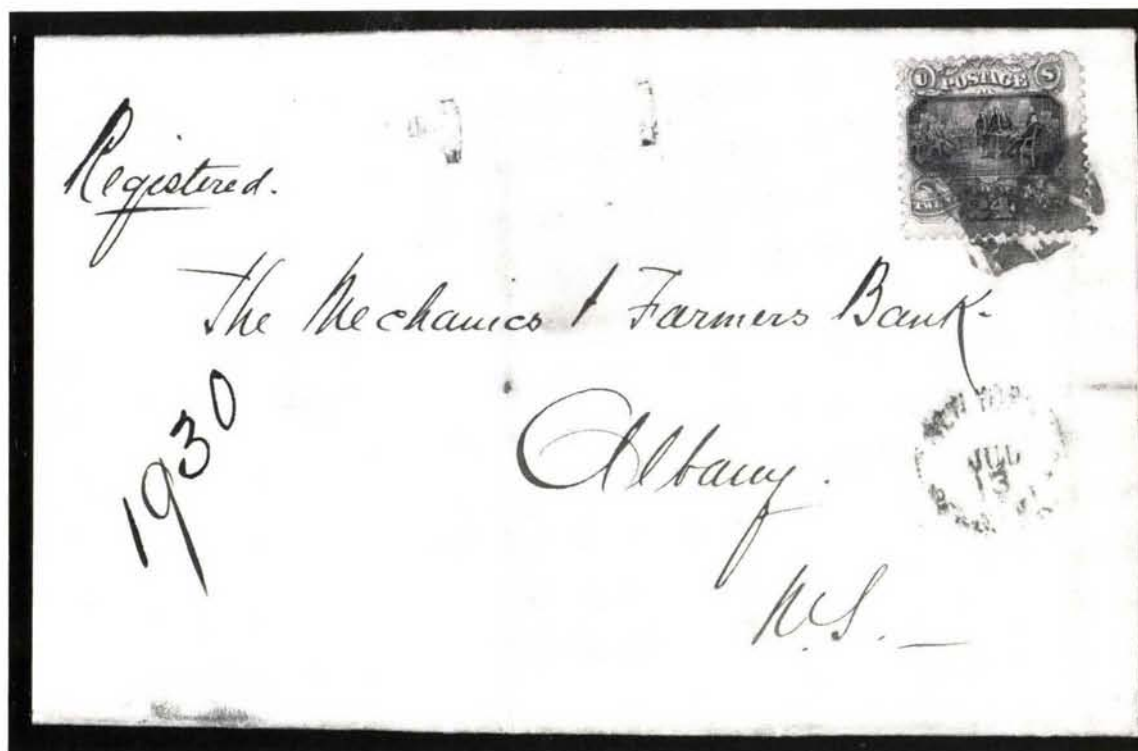 U POSTAGE S
Registered.
The Mechanics & Farmers Bank.
1930
Albany.
JUL
13
N.Y.